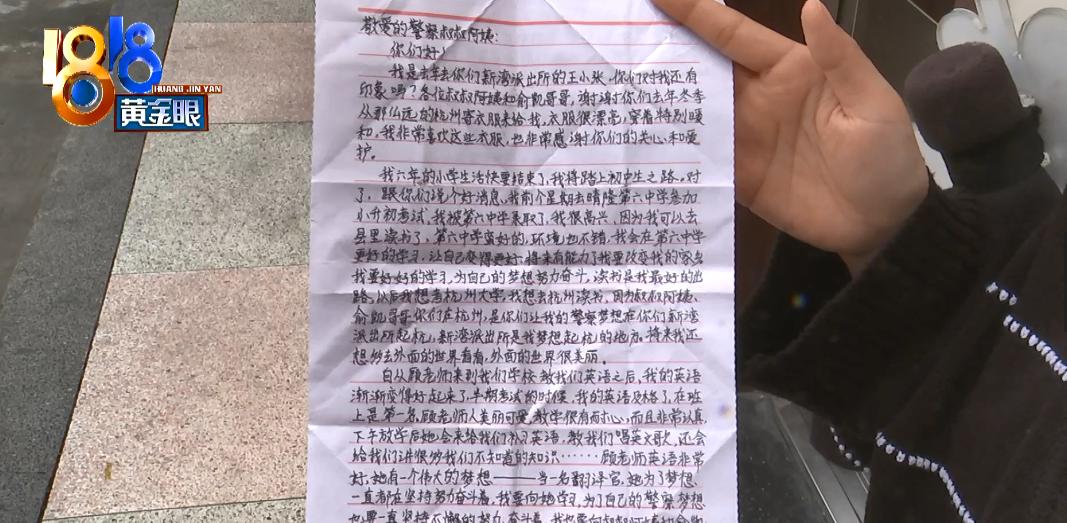 1818
HUANG JIN YAN
黄金眼
敬爱的警察叔叔阿姨：
你们好！
我是去年去你们新湾派出所的王小张，你们对我还有
印象吗？各位叔叔阿姨和俞凯哥哥，谢谢你们去年冬季
从那么远的杭州寄衣服来给我，衣服很漂亮，穿着特别暖
和，我非常喜欢这些衣服，也非常感谢你们的关心和爱
护。
我六年的小学生活快要结束了，我将踏上初中生之路。对
了，跟你们说个好消息，我前个星期去晴隆第六中学参加
小升初考试，我被第六中学录取了，我很高兴，因为我可以去
县里读书了，第六中学蛮好的，环境也不错，我会在第六中学
更好的学习，让自己变得更好，将来有能力了我要改变我的家乡
我要好好的学习，为自己的梦想努力奋斗，读书是我最好的出
路，以后我想考杭州大学，我想去杭州读书，因为叔叔阿姨、
俞凯哥哥你们在杭州，是你们让我的警察梦想在你们新湾
派出所起杭，新湾派出所是我梦想起杭的地方。将来我还
想多去外面的世界看看，外面的世界很美丽。
自从顾老师来到我们学校教我们英语之后，我的英语
渐渐变得好起来了，半期考试的时候，我的英语及格了，在班
上是第一名，顾老师人美丽可爱，教学很有耐心，而且非常认真，
下午放学后她会来给我们补习英语，教我们唱英文歌，还会
给我们讲很多我们不知道的知识……顾老师英语非常
好，她有一个伟大的梦想——当一名翻译官，她为了梦想，
一直都在坚持努力奋斗着，我要向她学习，为了自己的警察梦想
也要一直坚持不懈的努力，奋斗着，我也要向